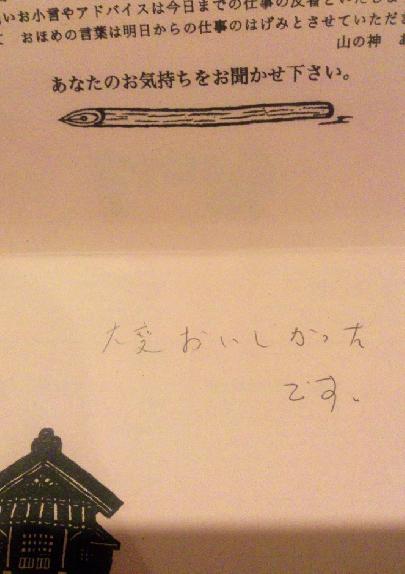 いお小言やアドバイスは今日までの仕事の反省といたしま
おほめの言葉は明日からの仕事のはげみとさせていただき
山の神
あなたのお気持ちをお聞かせ下さい。
大変おいしかった
です。